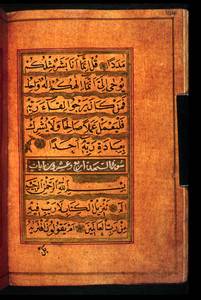 مَدَدًا قُلْ إِنَّمَا أَنَا بَشَرٌ مِثْلُكُمْ
يُوحَى إِلَيَّ أَنَّمَا إِلَهُكُمْ إِلَهٌ وَاحِدٌ
فَمَنْ كَانَ يَرْجُوا لِقَاءَ رَبِّهِ
فَلْيَعْمَلْ عَمَلًا صَالِحًا وَلَا يُشْرِكْ
بِعِبَادَةِ رَبِّهِ أَحَدًا
سورة السجدة
بِسْمِ اللَّهِ الرَّحْمَنِ الرَّحِيمِ
الم تَنْزِيلُ الْكِتَابِ لَا رَيْبَ فِيهِ
مِنْ رَبِّ الْعَالَمِينَ أَمْ يَقُولُونَ افْتَرَيهُ